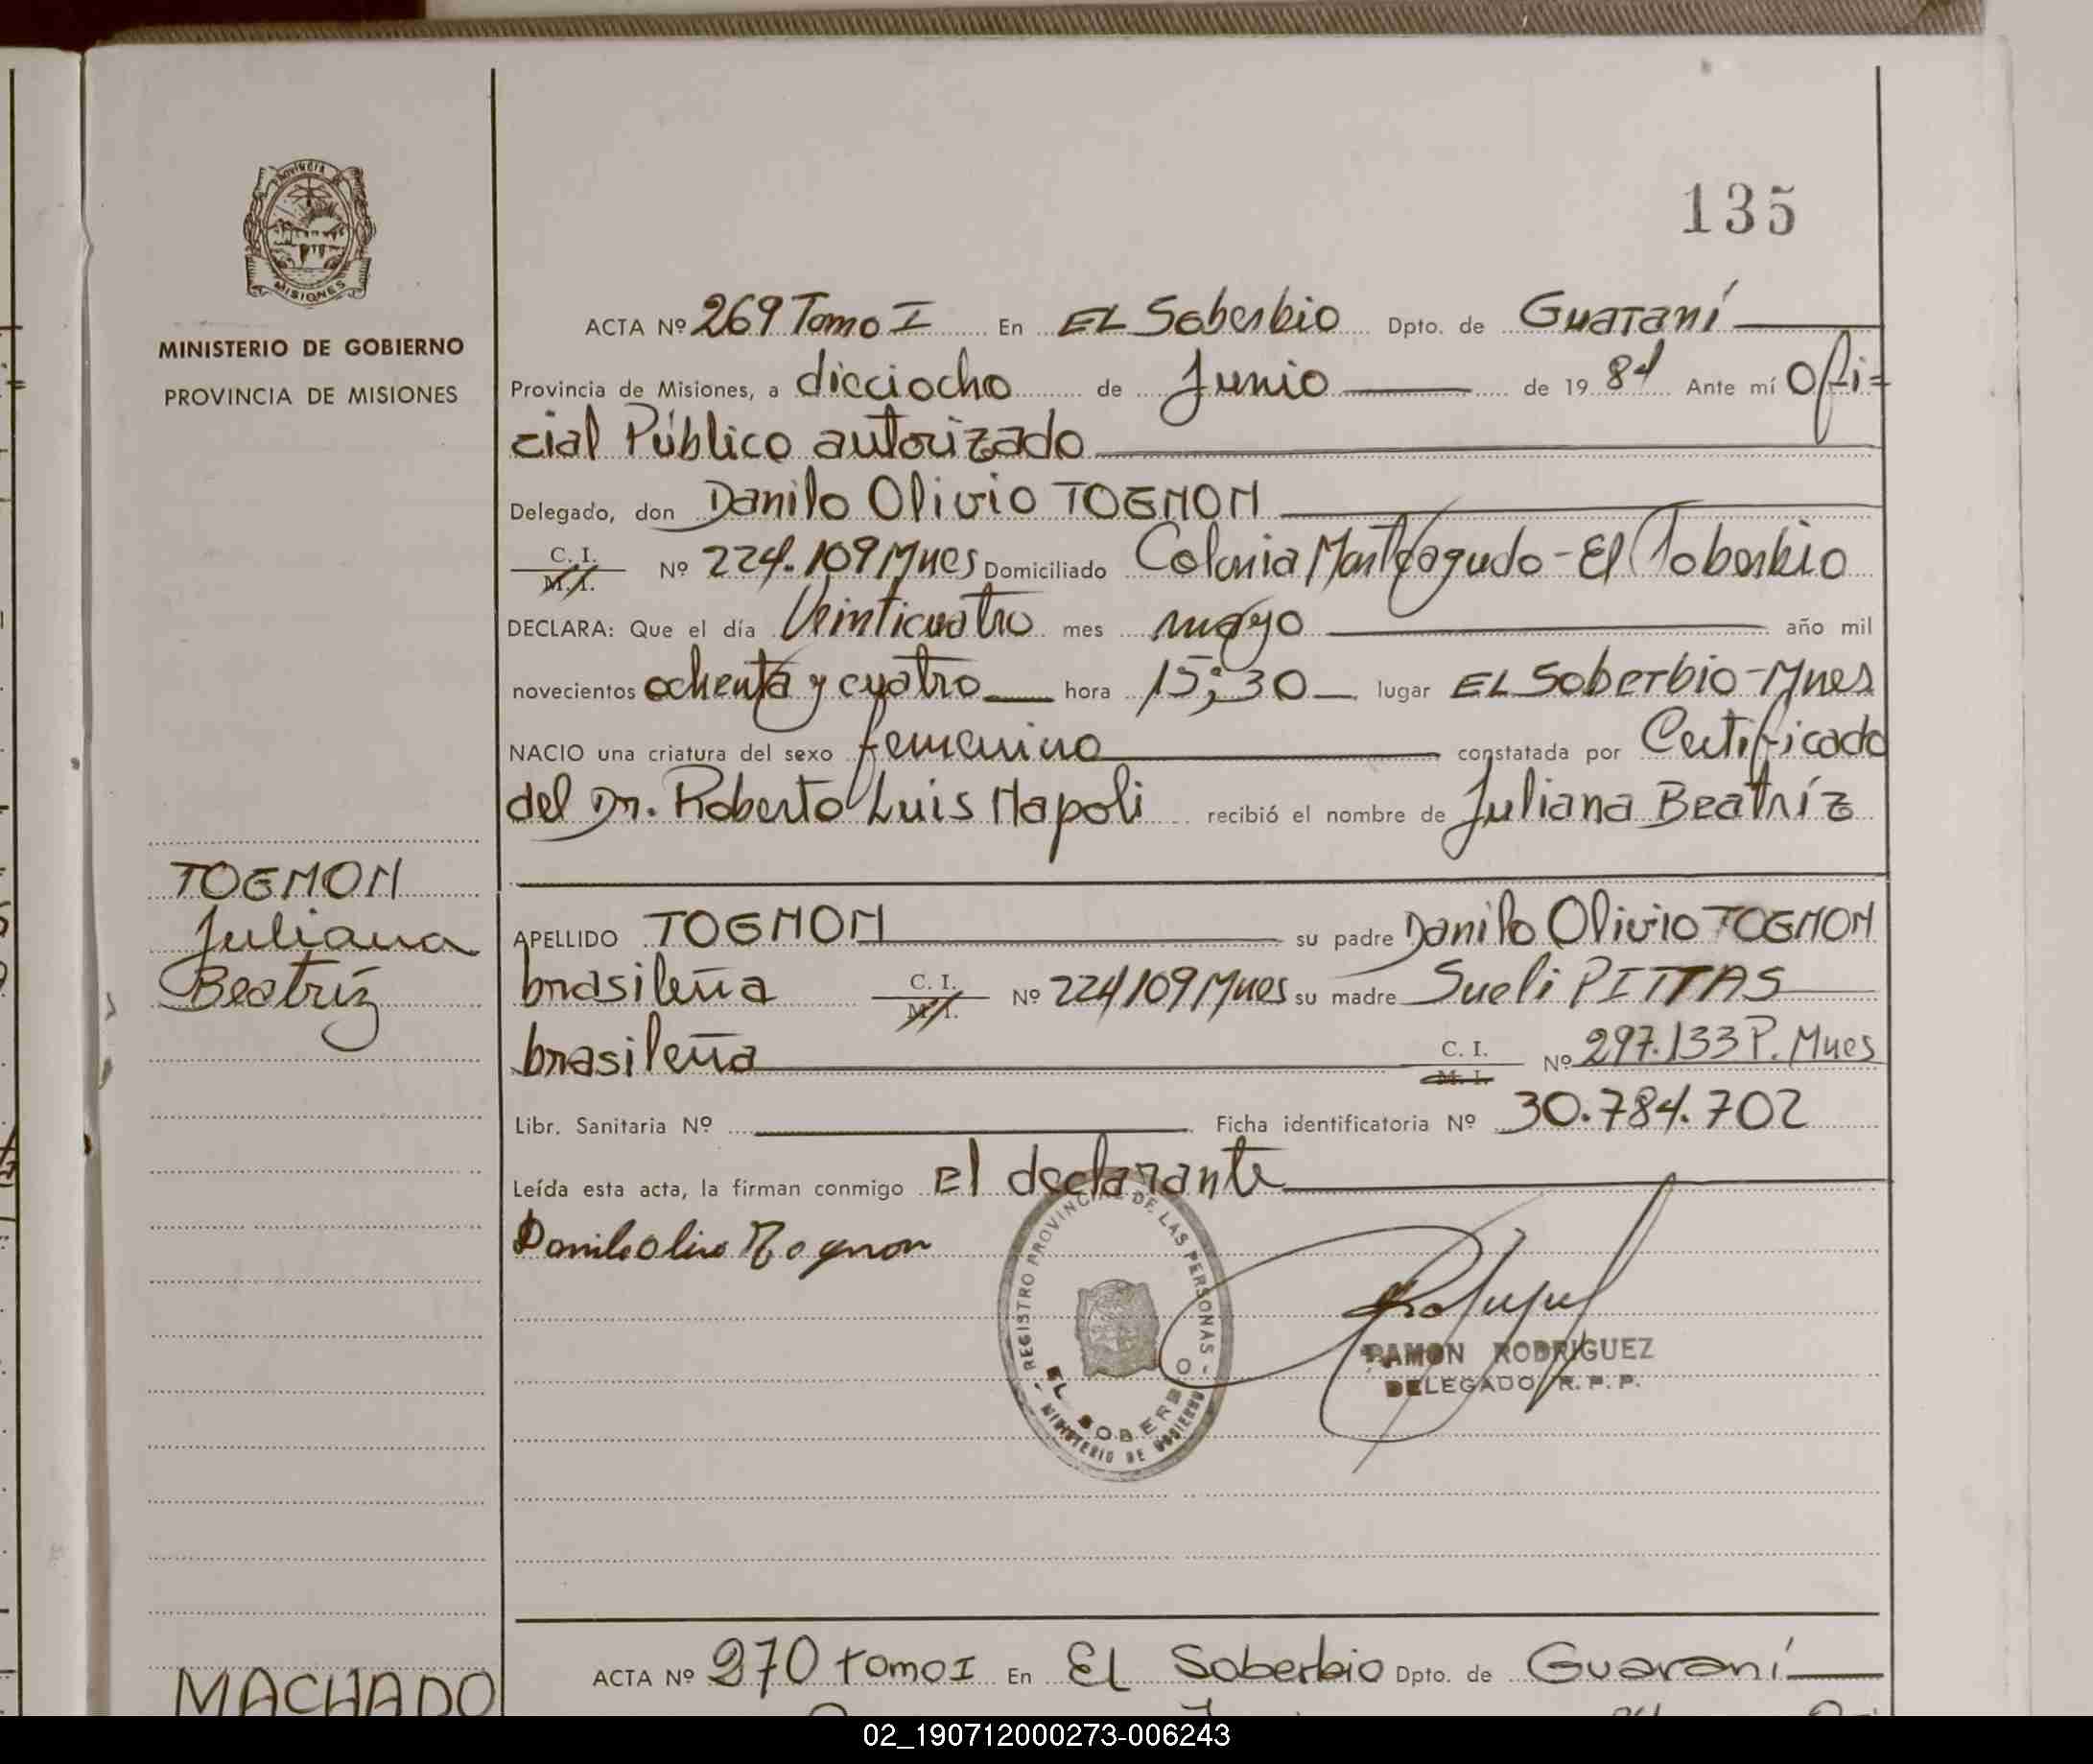 PROVINCIA DE
MISIONES
MINISTERIO DE GOBIERNO
PROVINCIA DE MISIONES
135
ACTA Nº 269 Tomo I En EL Soberbio Dpto. de Guaraní
Provincia de Misiones, a dieciocho de Junio de 19 84 Ante mí Ofi=
cial Público autorizado
Delegado, don Danilo Olivio TOGNON
C. I.
M. I. Nº 224.109 Mnes Domiciliado Colonia Monteagudo - El Soberbio
DECLARA: Que el día Veinticuatro mes mayo año mil
novecientos ochenta y cuatro hora 15;30 lugar EL Soberbio - Mnes
NACIO una criatura del sexo femenino constatada por Certificado
del Dr. Roberto Luis Napoli recibió el nombre de Juliana Beatríz
TOGNON
Juliana
Beatríz
APELLIDO TOGNON su padre Danilo Olivio TOGNON
brasileña C. I.
M. I. Nº 224109 Mnes su madre Sueli PITTAS
brasileña C. I.
M. I. Nº 297.133 P. Mnes
Libr. Sanitaria Nº Ficha identificatoria Nº 30.784.702
Leída esta acta, la firman conmigo El declarante
Danilo Olivio Tognon
REGISTRO PROVINCIAL DE LAS PERSONAS - MINISTERIO DE GOBIERNO -
EL SOBERBIO
RAMON RODRIGUEZ
DELEGADO R. P. P.
MACHADO
ACTA Nº 270 tomo I En El Soberbio Dpto. de Guaraní
02_190712000273-006243